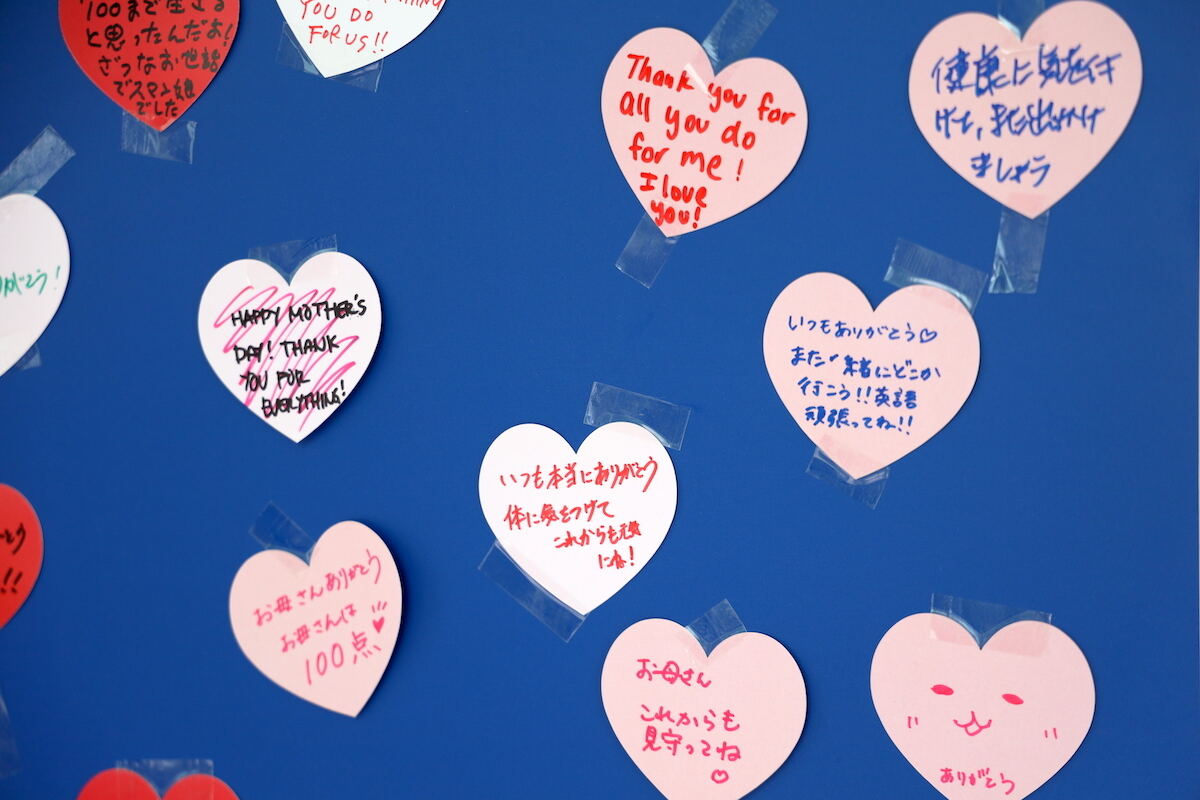 100まで生きる
と思ったんだよ!
ざつなお世話
でスマン娘
でした
YOU DO
FOR US!!
Thank you for
all you do
for me!
I love
you!
健康に気を付
けて、また出かけ
ましょう
りがとう!
HAPPY MOTHER'S
DAY! THANK
YOU FOR
EVERYTHING!
いつもありがとう♡
また一緒にどこか
行こう!!英語
頑張ってね!!
いつも本当にありがとう
体に気をつけて
これからも元気
にね!
とう
!!
お母さんありがとう
お母さんは
100点
お母さん
これからも
見守ってね
♡
ありがとう